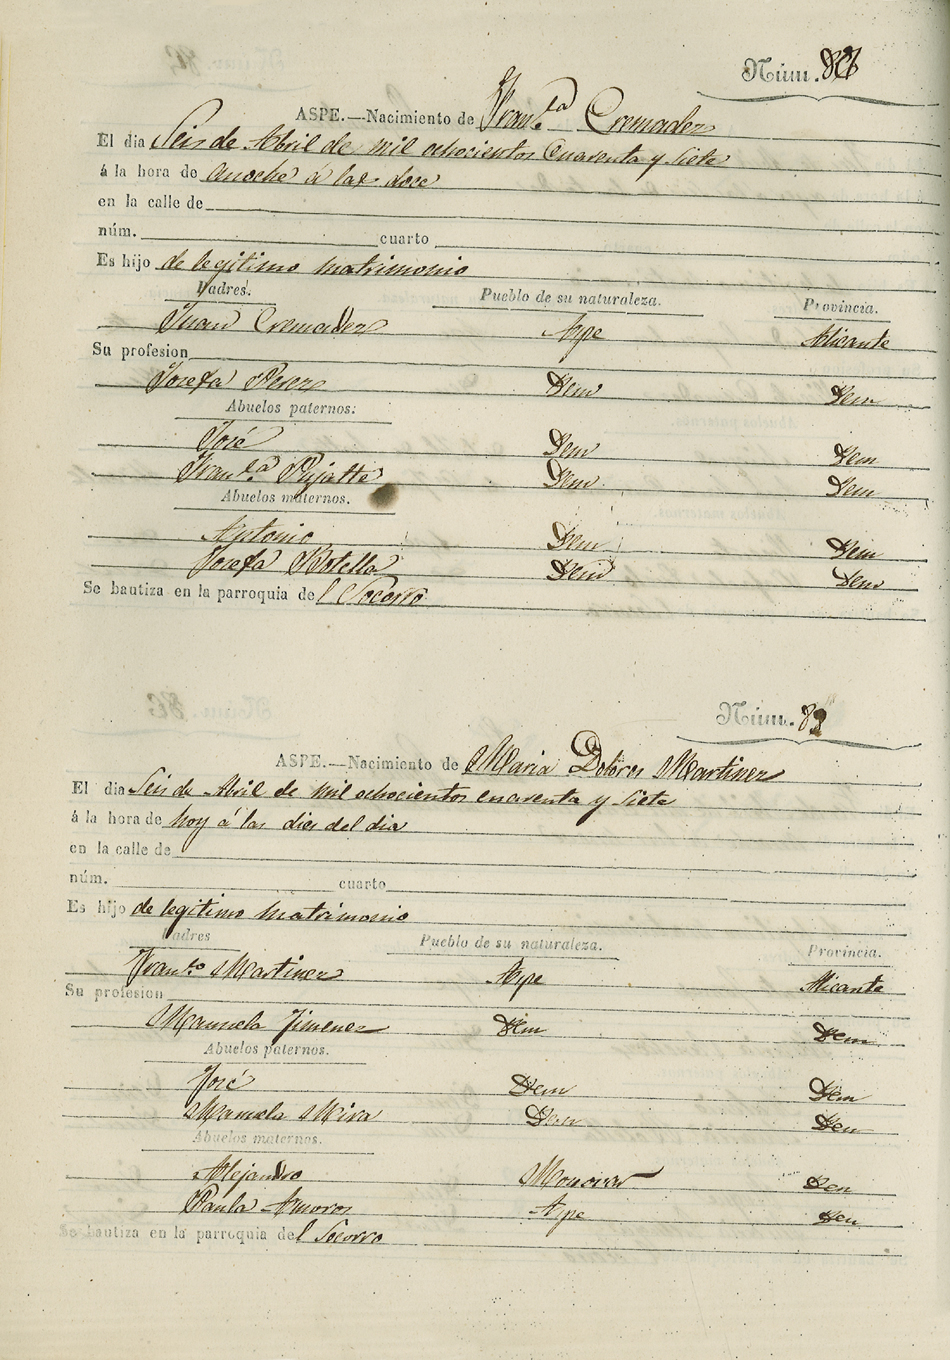 Núm. 86
ASPE.—Nacimiento de Franca Cremadez
El dia Seis de Abril de mil ochocientos cuarenta y siete
á la hora de anoche a las doce
en la calle de
núm. cuarto
Es hijo de legitimo matrimonio
Padres. Pueblo de su naturaleza. Provincia.
Juan Cremadez Aspe Alicante
Su profesion
Josefa Perez Idem Idem
Abuelos paternos.
José Idem Idem
Franca Pujalte Idem Idem
Abuelos maternos.
Antonio Idem Idem
Josefa Botella Idem Idem
Se bautiza en la parroquia del Socorro
Núm.
ASPE.—Nacimiento de Maria Dolores Martinez
El dia Seis de Abril de mil ochocientos cuarenta y siete
á la hora de hoy á las dies del dia
en la calle de
núm. cuarto
Es hijo de legitimo matrimonio
Padres Pueblo de su naturaleza. Provincia.
Franco Martinez Aspe Alicante
Su profesion
Manuela Jimenez Idem Idem
Abuelos paternos.
José Idem Idem
Manuela Mira Idem Idem
Abuelos maternos.
Alejandro Monovar Idem
Paula Amoros Aspe Idem
Se bautiza en la parroquia del Socorro